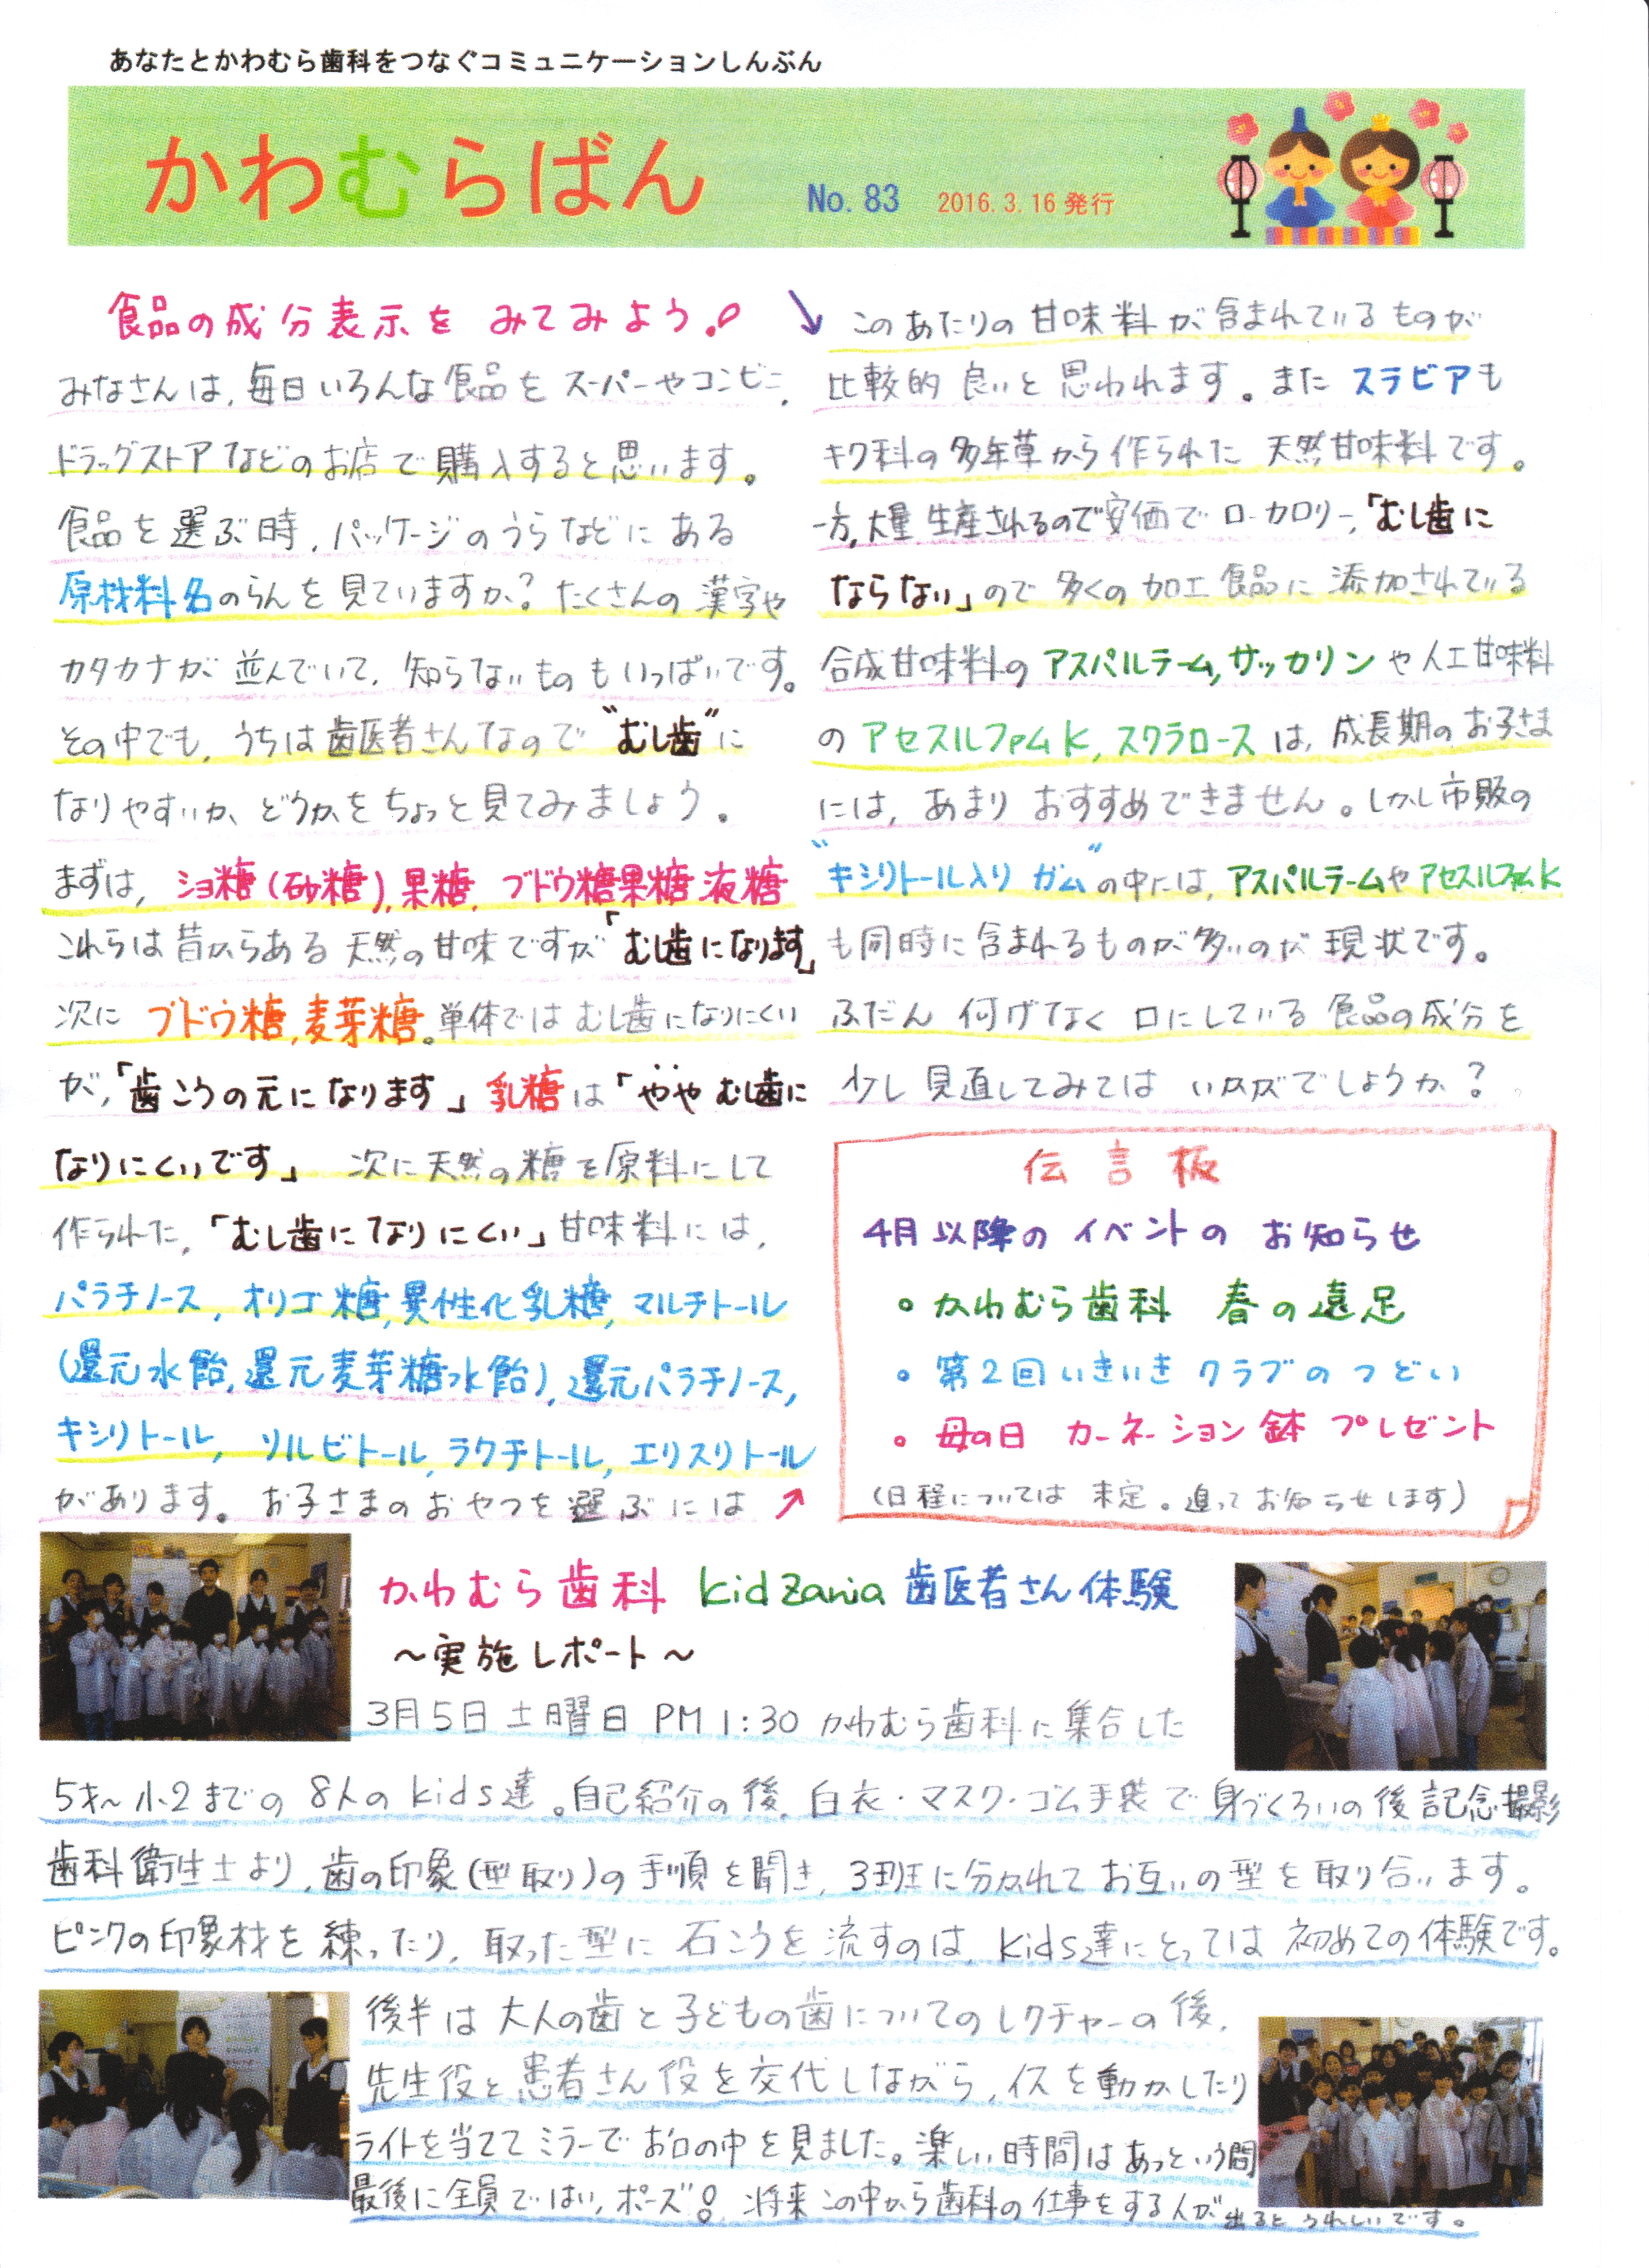 あなたとかわむら歯科をつなぐコミュニケーションしんぶん
かわむらばん No. 83 2016. 3. 16 発行
食品の成分表示を みてみよう!
みなさんは、毎日いろんな食品を スーパーやコンビニ、
ドラッグストアなどのお店で購入すると思います。
食品を選ぶ時、パッケージのうらなどにある
原材料名のらんを見ていますか?たくさんの漢字や
カタカナが並んでいて、知らないものもいっぱいです。
その中でも、うちは歯医者さんなので“むし歯”に
なりやすいか、どうかをちょっと見てみましょう。
まずは、ショ糖(砂糖)、果糖、ブドウ糖果糖液糖
これらは昔からある天然の甘味ですが「むし歯になります」
次に ブドウ糖、麦芽糖。単体ではむし歯になりにくい
が、「歯こうの元になります」乳糖は「やや むし歯に
なりにくいです」 次に天然の糖を原料にして
作られた、「むし歯になりにくい」甘味料には、
パラチノース、オリゴ糖、異性化乳糖、マルチトール
(還元水飴、還元麦芽糖水飴)、還元パラチノース、
キシリトール、ソルビトール、ラクチトール、エリスリトール
があります。お子さまのおやつを選ぶには ↗
↘ このあたりの甘味料が含まれているものが
比較的良いと思われます。またスラビアも
キク科の多年草から作られた 天然甘味料です。
一方、大量生産されるので安価でローカロリー、「むし歯に
ならない」ので多くの加工食品に添加されている
合成甘味料のアスパルテーム、サッカリンや人工甘味料
のアセスルファムK、スクラロースは、成長期のお子さま
には、あまりおすすめできません。しかし市販の
“キシリトール入りガム”の中には、アスパルテームやアセスルファムK
も同時に含まれるものが多いのが現状です。
ふだん何げなく口にしている食品の成分を
少し見直してみては いかがでしょうか?
伝言板
4月以降のイベントのお知らせ
• かわむら歯科 春の遠足
• 第2回いきいきクラブのつどい
• 母の日 カーネーション鉢 プレゼント
(日程については 未定。追ってお知らせします)
かわむら歯科 kidZania 歯医者さん体験
~実施レポート~
3月5日土曜日 PM1:30 かわむら歯科に集合した
5才~小2までの8人のkids達。自己紹介の後、白衣・マスク・ゴム手袋で身づくろいの後記念撮影
歯科衛生士より、歯の印象(型取り)の手順を聞き、3班に分かれてお互いの型を取り合います。
ピンクの印象材を練ったり、取った型に石こうを流すのは、kids達にとっては初めての体験です。
後半は大人の歯と子どもの歯についてのレクチャーの後、
先生役と患者さん役を交代しながら、イスを動かしたり
ライトを当ててミラーでお口の中を見ました。楽しい時間はあっという間
最後に全員ではい、ポーズ! 将来この中から歯科の仕事をする人が出るとうれしいです。